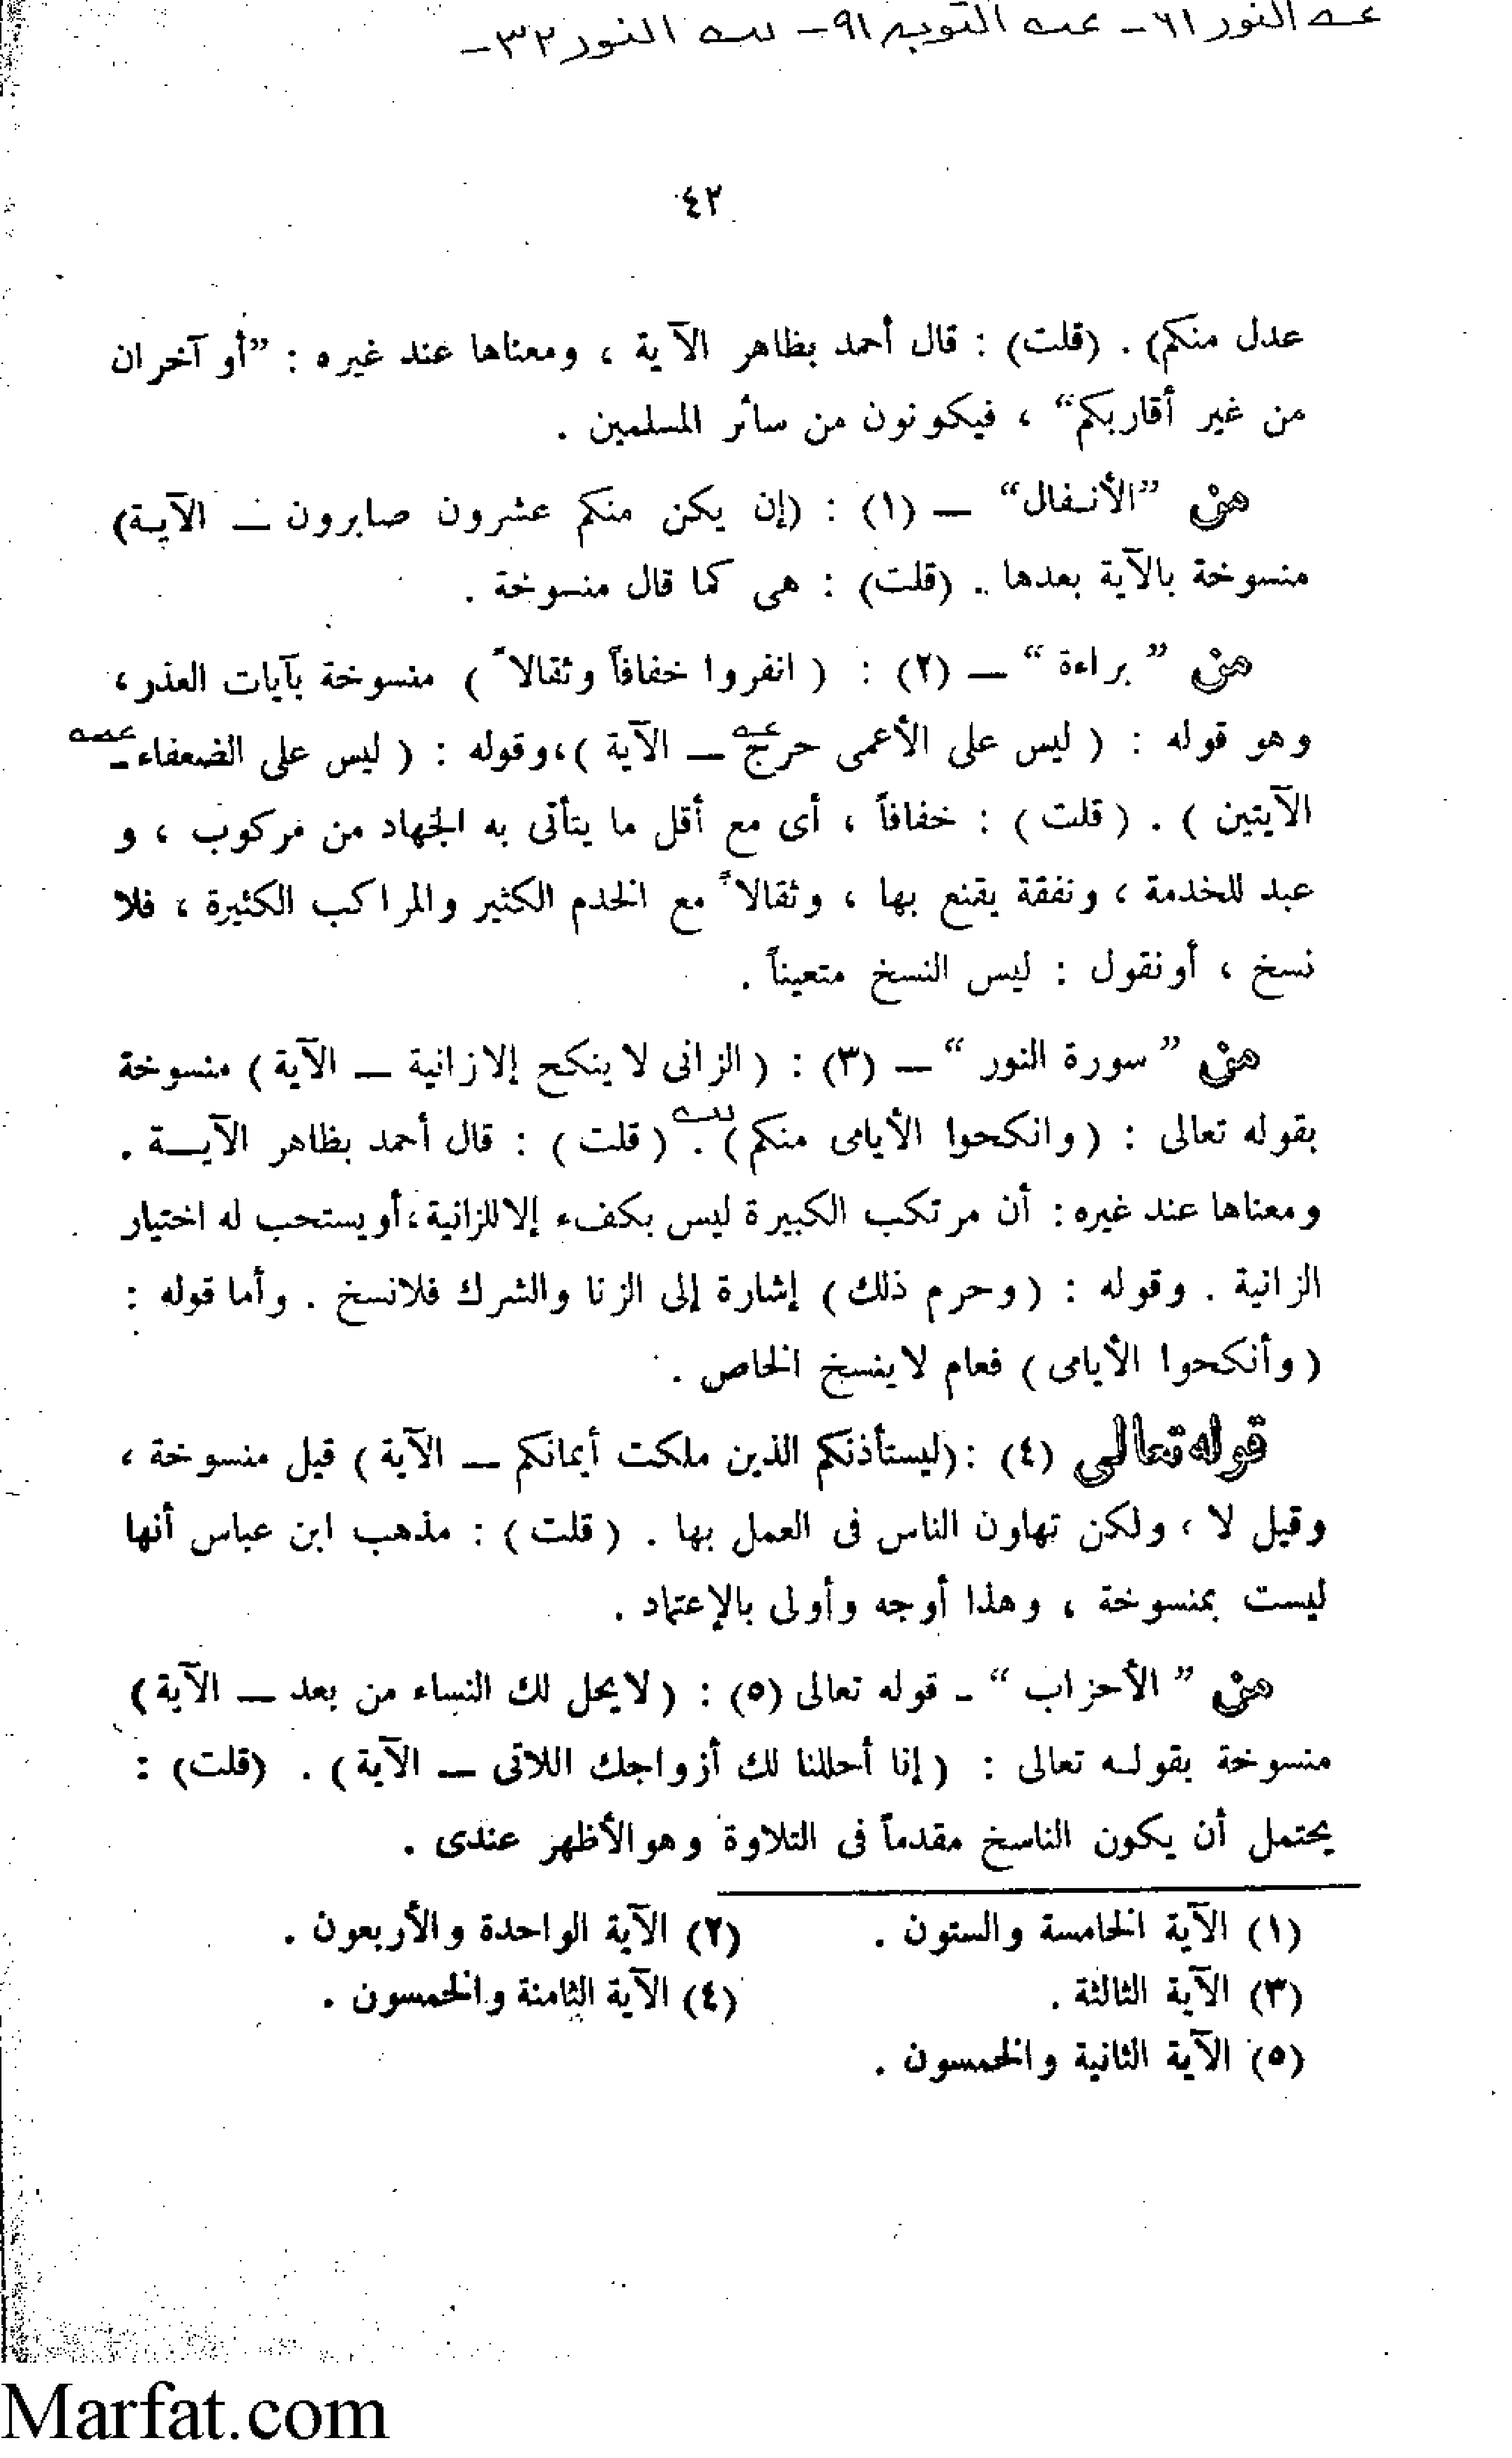 عـه النور ٦١ - عـه التوبه ٩١ - لـه النور ٣٢ -
٤٢
عدل منكم) . (قلت) : قال أحمد بظاهر الآية ، ومعناها عند غيره : ”أو آخران
من غير أقاربكم“ ، فيكونون من سائر المسلمين .
من ”الأنفال“ — (١) : (إن يكن منكم عشرون صابرون — الآية)
منسوخة بالآية بعدها . (قلت) : هى كما قال منسوخة .
من ” براءة “ — (٢) : ( انفروا خفافاً وثقالاً ) منسوخة بآيات العذر ،
وهو قوله : ( ليس على الأعمى حرج — الآية )، وقوله : ( ليس على الضعفاء -
الآيتين ) . ( قلت ) : خفافاً ، أى مع أقل ما يتأتى به الجهاد من مركوب ، و
عبد للخدمة ، ونفقة يقنع بها ، وثقالاً مع الخدم الكثير والمراكب الكثيرة ، فلا
نسخ ، أونقول : ليس النسخ متعيناً .
من ” سورة النور “ — (٣) : ( الزانى لا ينكح إلا زانية — الآية ) منسوخة
بقوله تعالى : ( وانكحوا الأيامى منكم) . ( قلت ) : قال أحمد بظاهر الآيـــة .
ومعناها عند غيره : أن مرتكب الكبيرة ليس بكفء إلا للزانية ، أو يستحب له اختيار
الزانية . وقوله : ( وحرم ذلك ) إشارة إلى الزنا والشرك فلانسخ . وأما قوله :
( وأنكحوا الأيامى ) فعام لاينسخ الخاص .
قوله تعالى (٤) : (ليستأذنكم الذين ملكت أيمانكم — الآية ) قيل منسوخة ،
وقيل لا ، ولكن تهاون الناس فى العمل بها . ( قلت ) : مذهب ابن عباس أنها
ليست بمنسوخة ، وهذا أوجه وأولى بالإعتماد .
من ” الأحزاب “ - قوله تعالى (٥) : ( لايحل لك النساء من بعد — الآية )
منسوخة بقولـه تعالى : ( إنا أحللنا لك أزواجك اللاتى — الآية ) . (قلت) :
يحتمل أن يكون الناسخ مقدماً فى التلاوة وهو الأظهر عندى .
(١) الآية الخامسة والستون . (٢) الآية الواحدة والأربعون .
(٣) الآية الثالثة . (٤) الآية الثامنة والخمسون .
(٥) الآية الثانية والخمسون .
Marfat.com